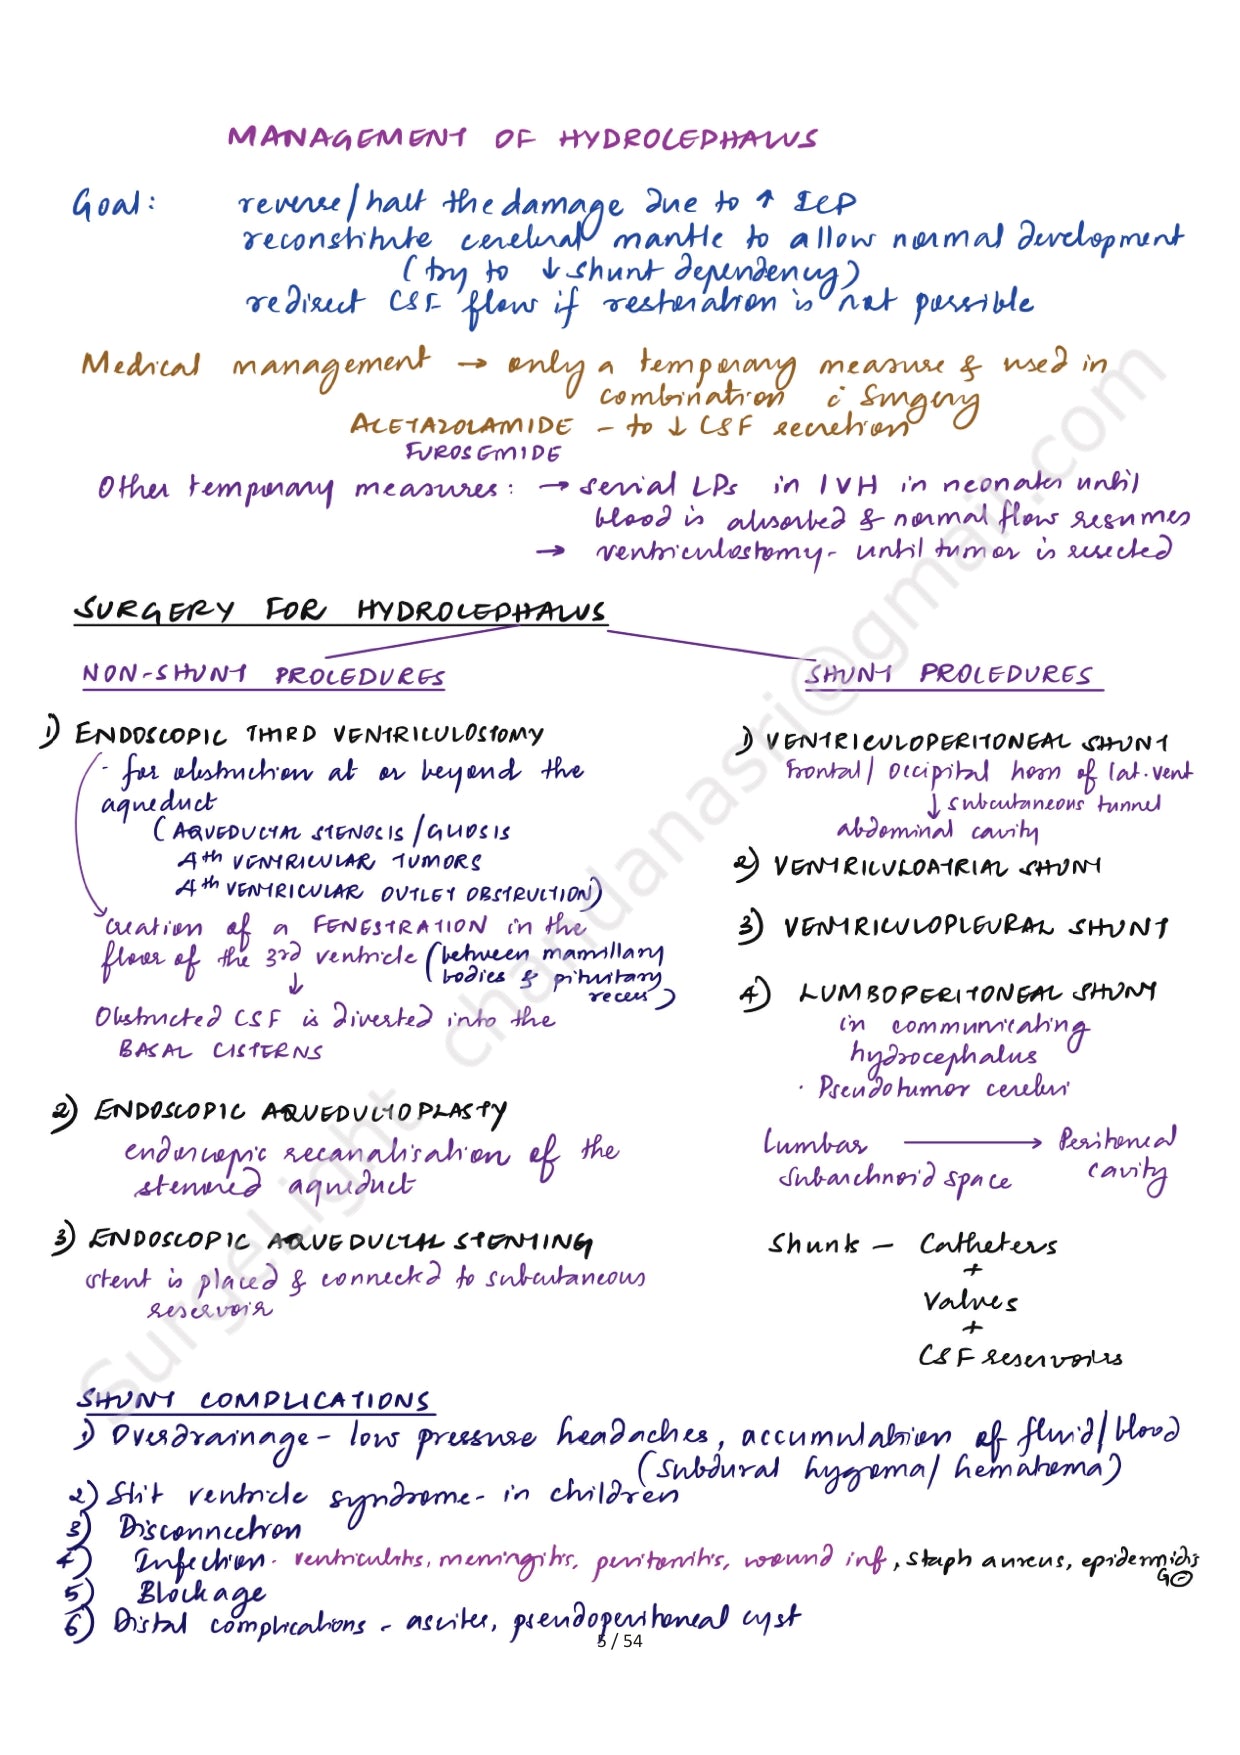 MANAGEMENT OF HYDROCEPHALUS
Goal: reverse/halt the damage due to ↑ ICP
reconstitute cerebral mantle to allow normal development
(try to ↓ shunt dependency)
redirect CSF flow if restoration is not possible
Medical management → only a temporary measure & used in
combination c̄ Surgery
ACETAZOLAMIDE - to ↓ CSF secretion
FUROSEMIDE
Other temporary measures: → serial LPs in IVH in neonates until
blood is absorbed & normal flow resumes
→ ventriculostomy - until tumor is resected
SURGERY FOR HYDROCEPHALUS
NON-SHUNT PROCEDURES
1) ENDOSCOPIC THIRD VENTRICULOSTOMY
· for obstruction at or beyond the
aqueduct
(AQUEDUCTAL STENOSIS/GLIOSIS
4th VENTRICULAR TUMORS
4th VENTRICULAR OUTLET OBSTRUCTION)
creation of a FENESTRATION in the
floor of the 3rd ventricle (between mamillary
bodies & pituitary
recess)
↓
Obstructed CSF is diverted into the
BASAL CISTERNS
2) ENDOSCOPIC AQUEDUCTOPLASTY
endoscopic recanalisation of the
stenosed aqueduct
3) ENDOSCOPIC AQUEDUCTAL STENTING
stent is placed & connected to subcutaneous
reservoir
SHUNT PROCEDURES
1) VENTRICULOPERITONEAL SHUNT
Frontal/Occipital horn of lat. vent
↓ subcutaneous tunnel
abdominal cavity
2) VENTRICULOATRIAL SHUNT
3) VENTRICULOPLEURAL SHUNT
4) LUMBOPERITONEAL SHUNT
in communicating
hydrocephalus
· Pseudotumor cerebri
Lumbar → Peritoneal
subarchnoid space cavity
Shunts - Catheters
+
Valves
+
CSF reservoirs
SHUNT COMPLICATIONS
1) Overdrainage - low pressure headaches, accumulation of fluid/blood
(subdural hygoma/hematoma)
2) Slit ventricle syndrome - in children
3) Disconnection
4) Infection - ventriculitis, meningitis, peritonitis, wound inf, staph aureus, epidermidis
G⊖
5) Blockage
6) Distal complications - ascites, pseudoperitoneal cyst
5 / 54
SurgeLight chandanasri@gmail.com